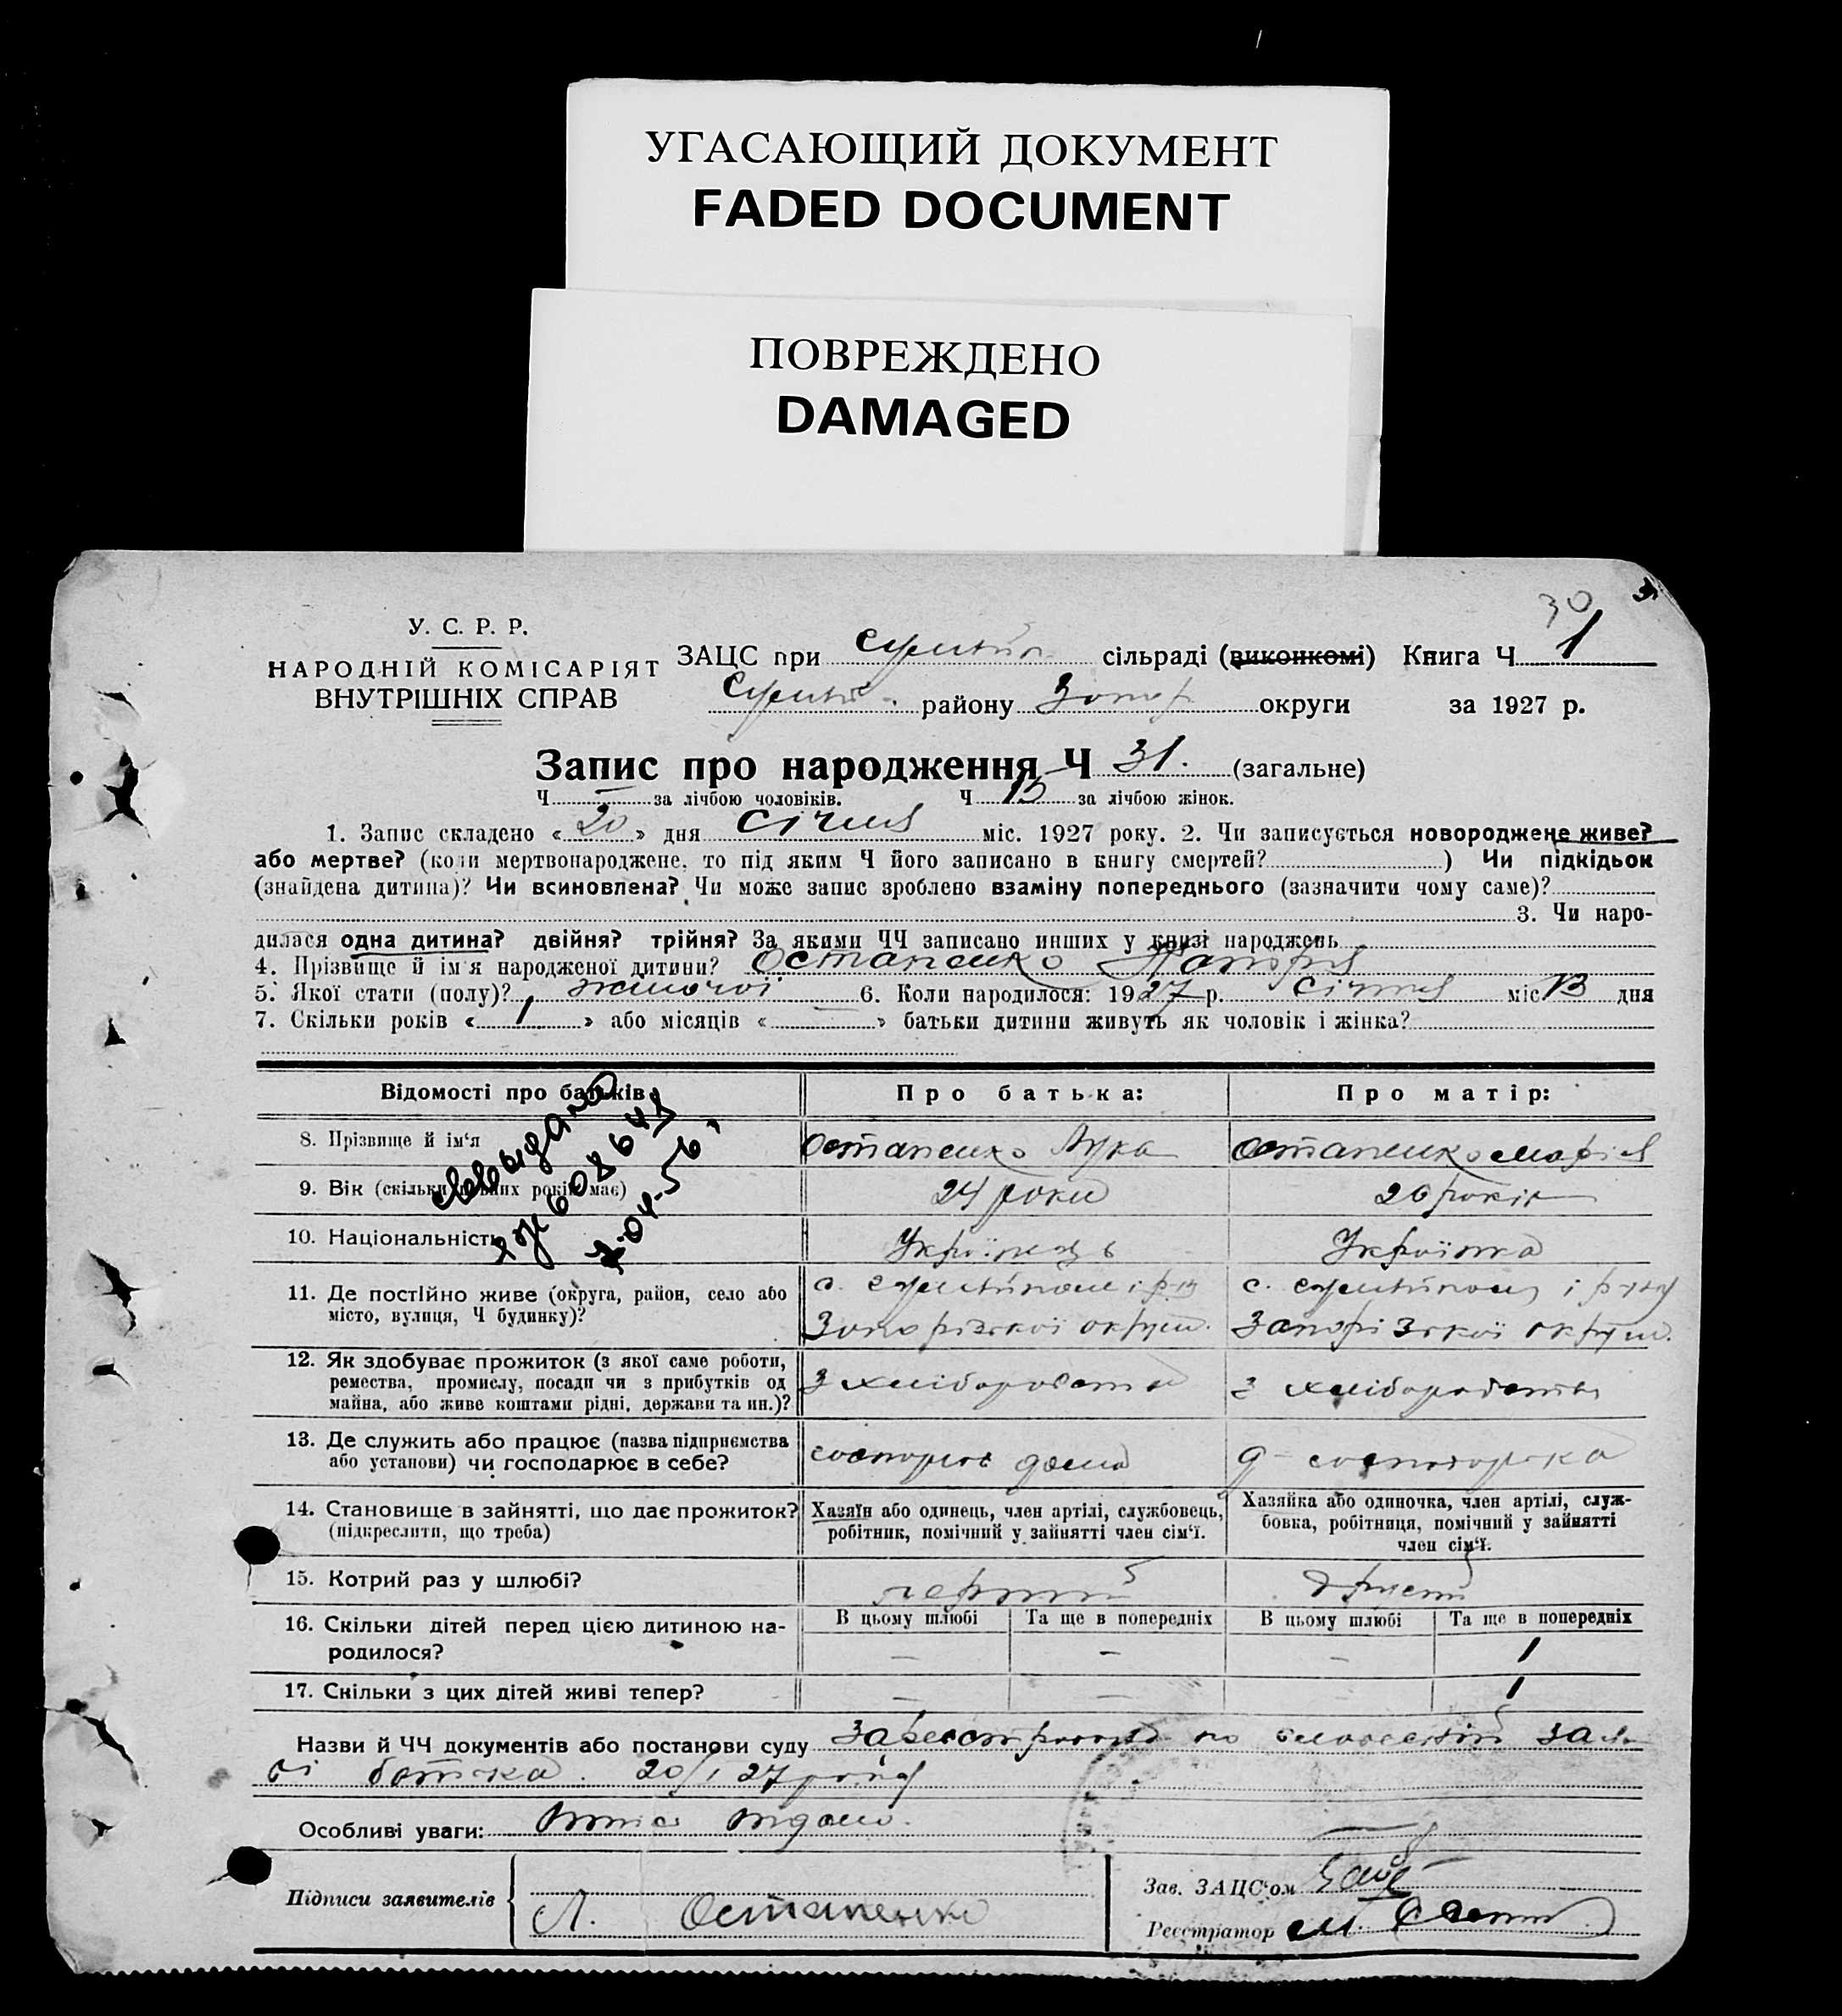 УГАСАЮЩИЙ ДОКУМЕНТ
FADED DOCUMENT
ПОВРЕЖДЕНО
DAMAGED
30
У. С. Р. Р.
НАРОДНІЙ КОМІСАРІЯТ
ВНУТРІШНІХ СПРАВ
ЗАЦС при сільраді (виконкомі) Книга Ч 1
району Запор округи за 1927 р.
Запис про народження Ч 31. (загальне)
Ч — за лічбою чоловіків. Ч 15 за лічбою жінок.
1. Запис складено «20» дня січня міс. 1927 року. 2. Чи записується новороджене живе?
або мертве? (коли мертвонароджене, то під яким Ч його записано в книгу смертей? ) Чи підкідьок
(знайдена дитина)? Чи всиновлена? Чи може запис зроблено взаміну попереднього (зазначити чому саме)?
3. Чи наро-
дилася одна дитина? двійня? трійня? За якими ЧЧ записано инших у книзі народжень
4. Прізвище й ім'я народженої дитини? Остапенко
5. Якої стати (полу)? жіночої 6. Коли народилося: 1927 р. січня міс 13 дня
7. Скільки років «1» або місяців « » батьки дитини живуть як чоловік і жінка?
Відомості про батьків Про батька: Про матір:
8. Прізвище й ім'я Остапенко Лука Остапенко Марія
9. Вік (скільки повних років має) 24 роки 26 років
10. Національність Українець Українка
11. Де постійно живе (округа, район, село або
місто, вулиця, Ч будинку)?
Запорізької округи. Запорізької округи.
12. Як здобуває прожиток (з якої саме роботи,
ремества, промислу, посади чи з прибутків од
майна, або живе коштами рідні, держави та ин.)?
З хліборобства З хліборобства
13. Де служить або працює (назва підприємства
або установи) чи господарює в себе?
господар дома д-господарка
14. Становище в зайнятті, що дає прожиток?
(підкреслити, що треба)
Хазяїн або одинець, член артілі, службовець,
робітник, помічний у зайнятті член сім'ї.
Хазяйка або одиночка, член артілі, служ-
бовка, робітниця, помічний у зайнятті
член сім'ї.
15. Котрий раз у шлюбі? перший другий
16. Скільки дітей перед цією дитиною на-
родилося?
В цьому шлюбі Та ще в попередніх В цьому шлюбі Та ще в попередніх
— — — 1
17. Скільки з цих дітей живі тепер? — — — 1
Назви й ЧЧ документів або постанови суду по словесній заяв
ві батька. 20/I 27 року
Особливі уваги:
Підписи заявителів
Л. Остапенко
Зав. ЗАЦС'ом
Реєстратор М.